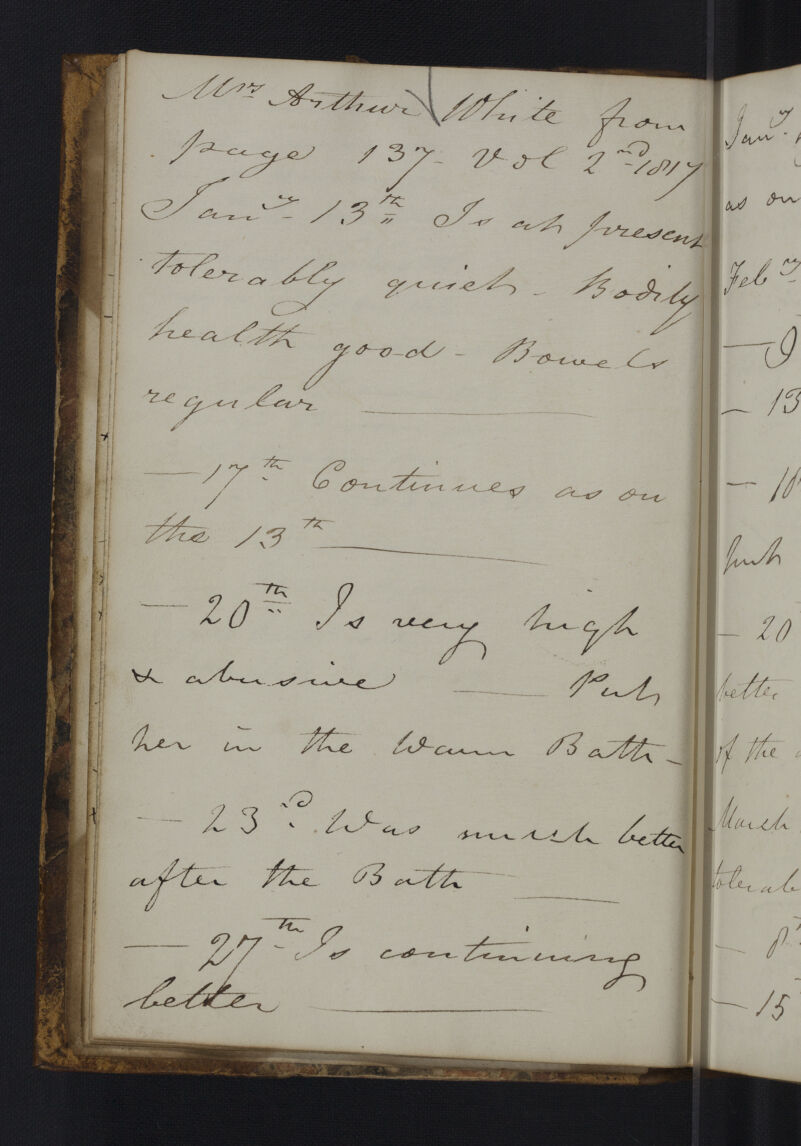 Mrs Arthur White from
page 137 - Vol 2nd 1817
Jany - 13th Is at present
tolerably quiet - Bodily
health good - Bowels
regular ———
— 17th Continues as on
the 13th ———
— 20th Is very high
& abusive — Put
her in the Warm Bath -
— 23rd Was much better
after the Bath —
— 27th Is continuing
better ———
Jany
as on
Feby
—
— 13
—
— 20
better
of the
March
—
— 15